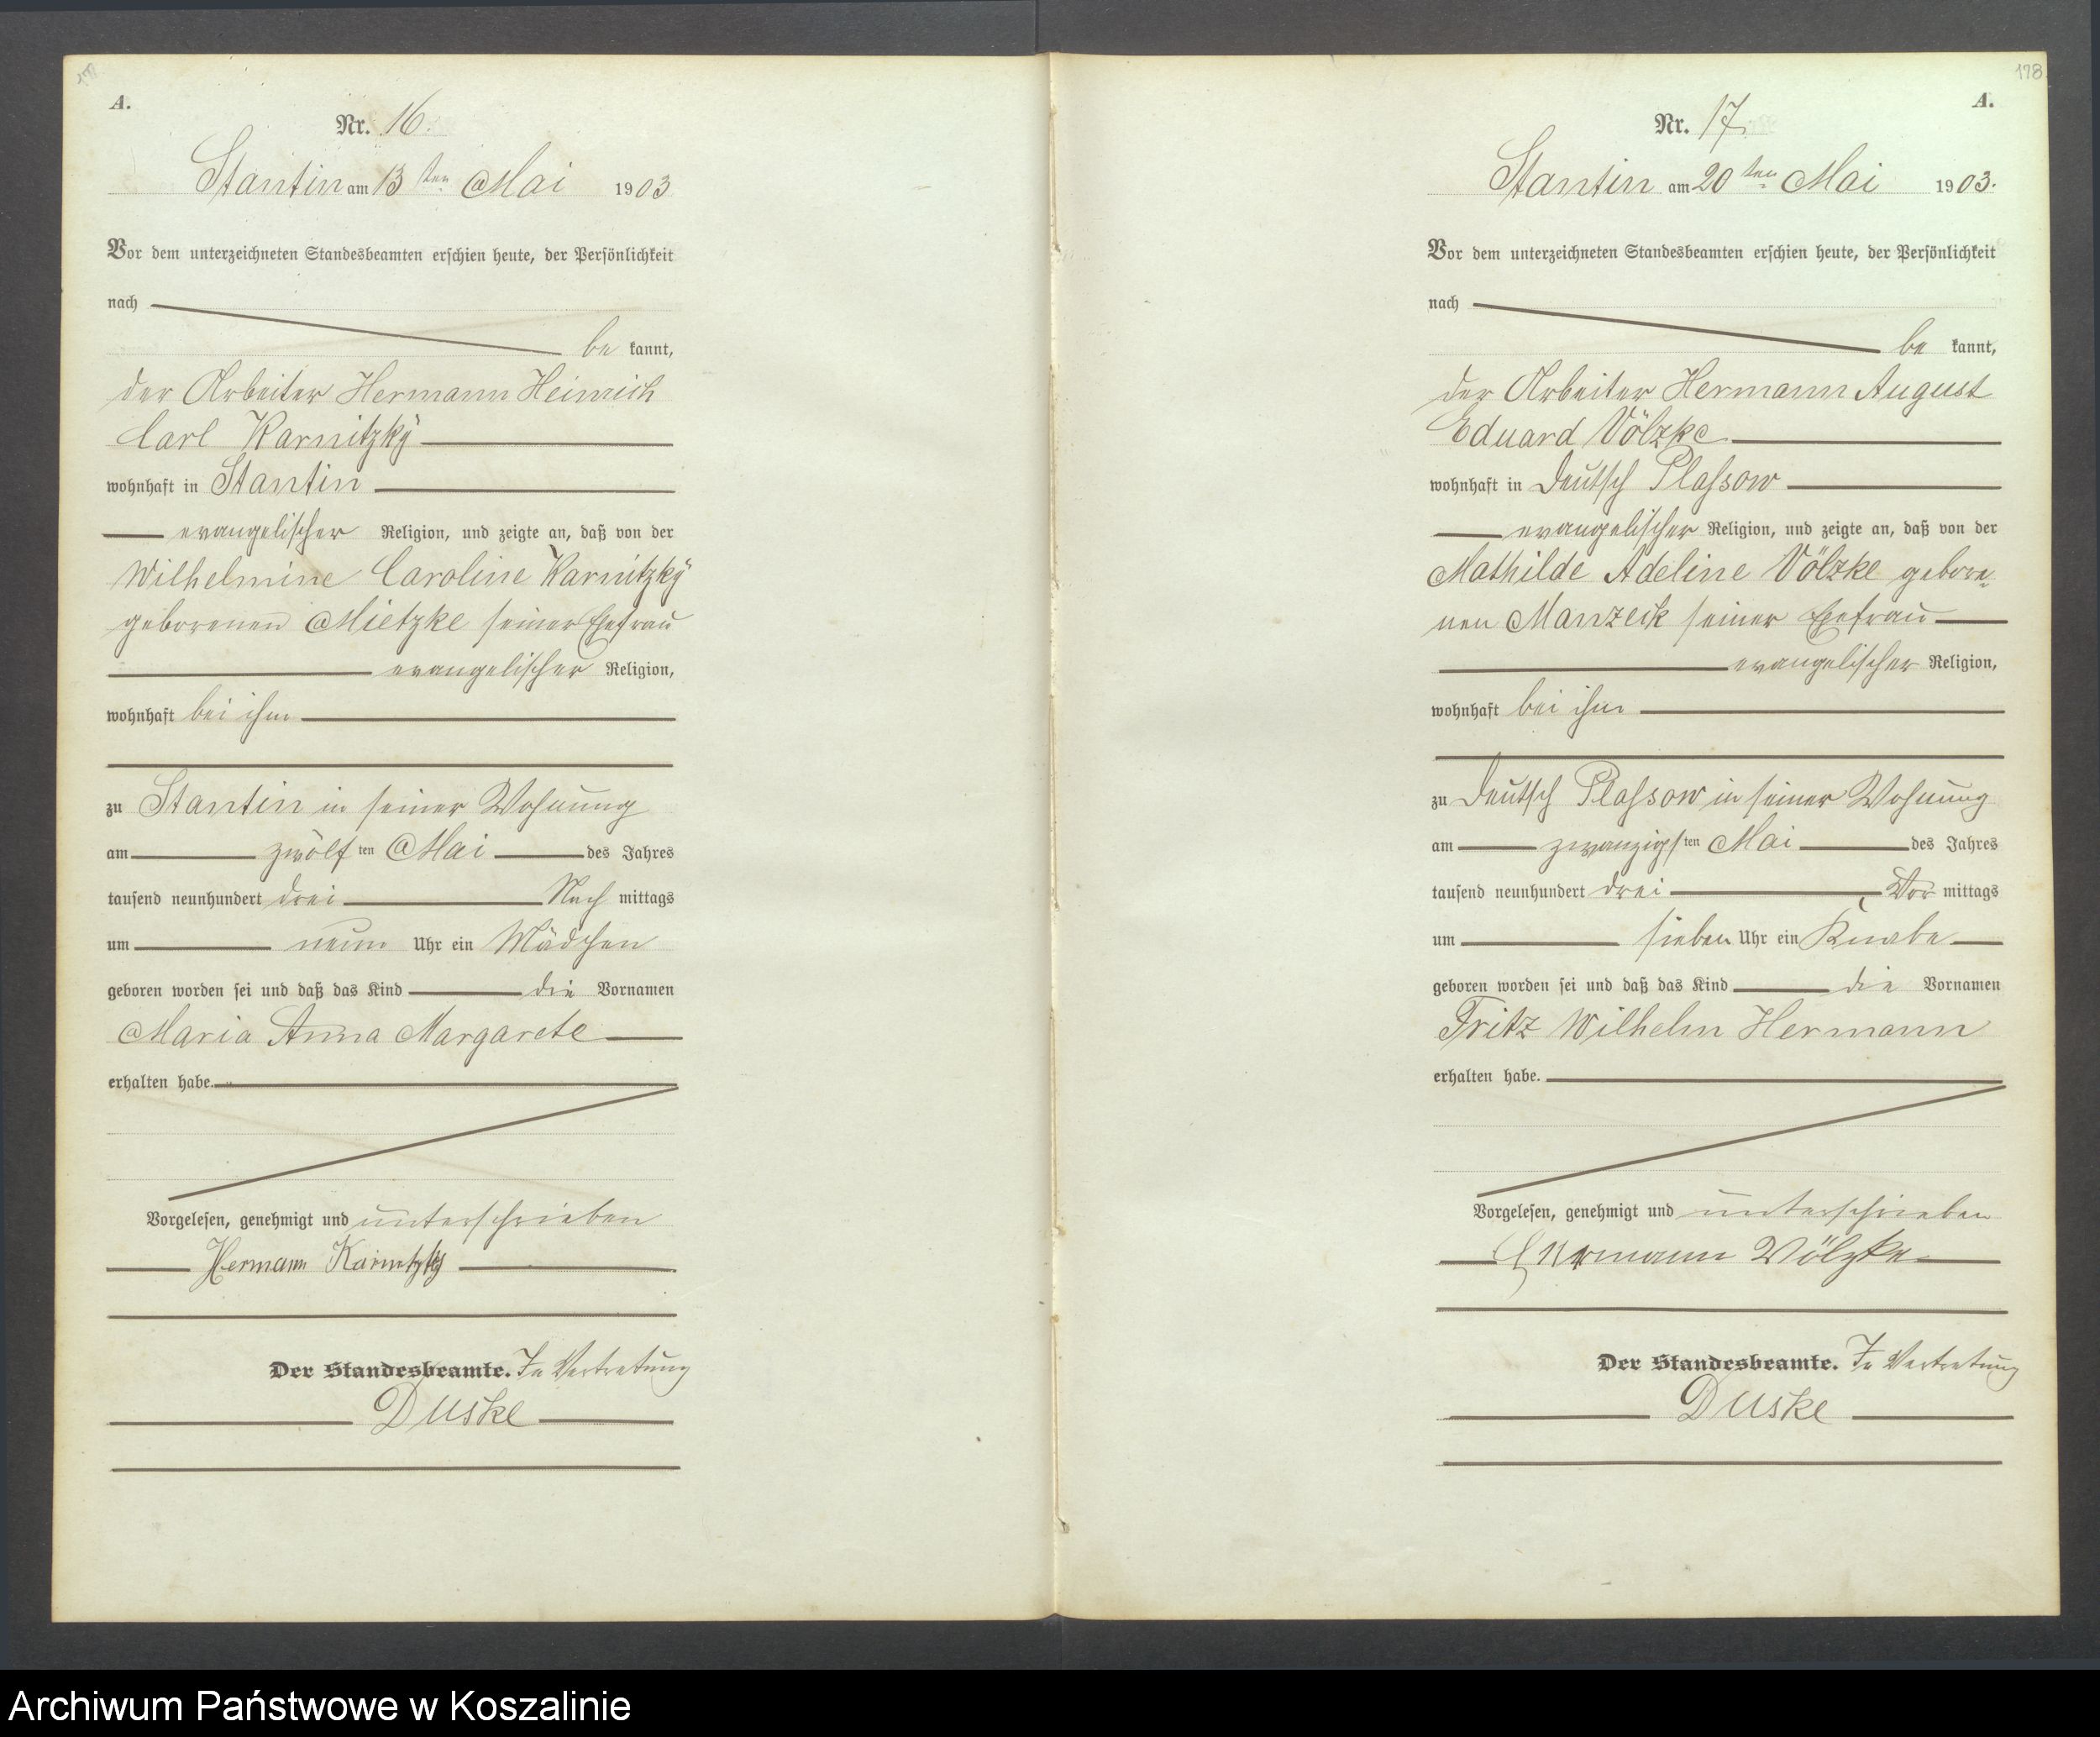 A.
Nr. 16.
Stantin am 13ten Mai 1903
Vor dem unterzeichneten Standesbeamten erschien heute, der Persönlichkeit
nach
be kannt,
der Arbeiter Hermann Heinrich
Carl Karnitzky
wohnhaft in Stantin
evangelischer Religion, und zeigte an, daß von der
Wilhelmine Caroline Karnitzky
geborenen Mietzke seiner Ehefrau
evangelischer Religion,
wohnhaft bei ihm
zu Stantin in seiner Wohnung
am zwölf ten Mai des Jahres
tausend neunhundert drei Nach mittags
um neun Uhr ein Mädchen
geboren worden sei und daß das Kind die Vornamen
Maria Anna Margarete
erhalten habe.
Vorgelesen, genehmigt und unterschrieben
Hermann Karnitzky
Der Standesbeamte. In Vertretung
Duske
178
A.
Nr. 17.
Stantin am 20ten Mai 1903.
Vor dem unterzeichneten Standesbeamten erschien heute, der Persönlichkeit
nach
be kannt,
der Arbeiter Hermann August
Eduard Völzke
wohnhaft in Deutsch Plassow
evangelischer Religion, und zeigte an, daß von der
Mathilde Adeline Völzke gebore-
nen Manzeck seiner Ehefrau
evangelischer Religion,
wohnhaft bei ihm
zu Deutsch Plassow in seiner Wohnung
am zwanzigs ten Mai des Jahres
tausend neunhundert drei Vor mittags
um sieben Uhr ein Knabe
geboren worden sei und daß das Kind die Vornamen
Fritz Wilhelm Hermann
erhalten habe.
Vorgelesen, genehmigt und unterschrieben
Hermann Völzke
Der Standesbeamte. In Vertretung
Duske
Archiwum Państwowe w Koszalinie